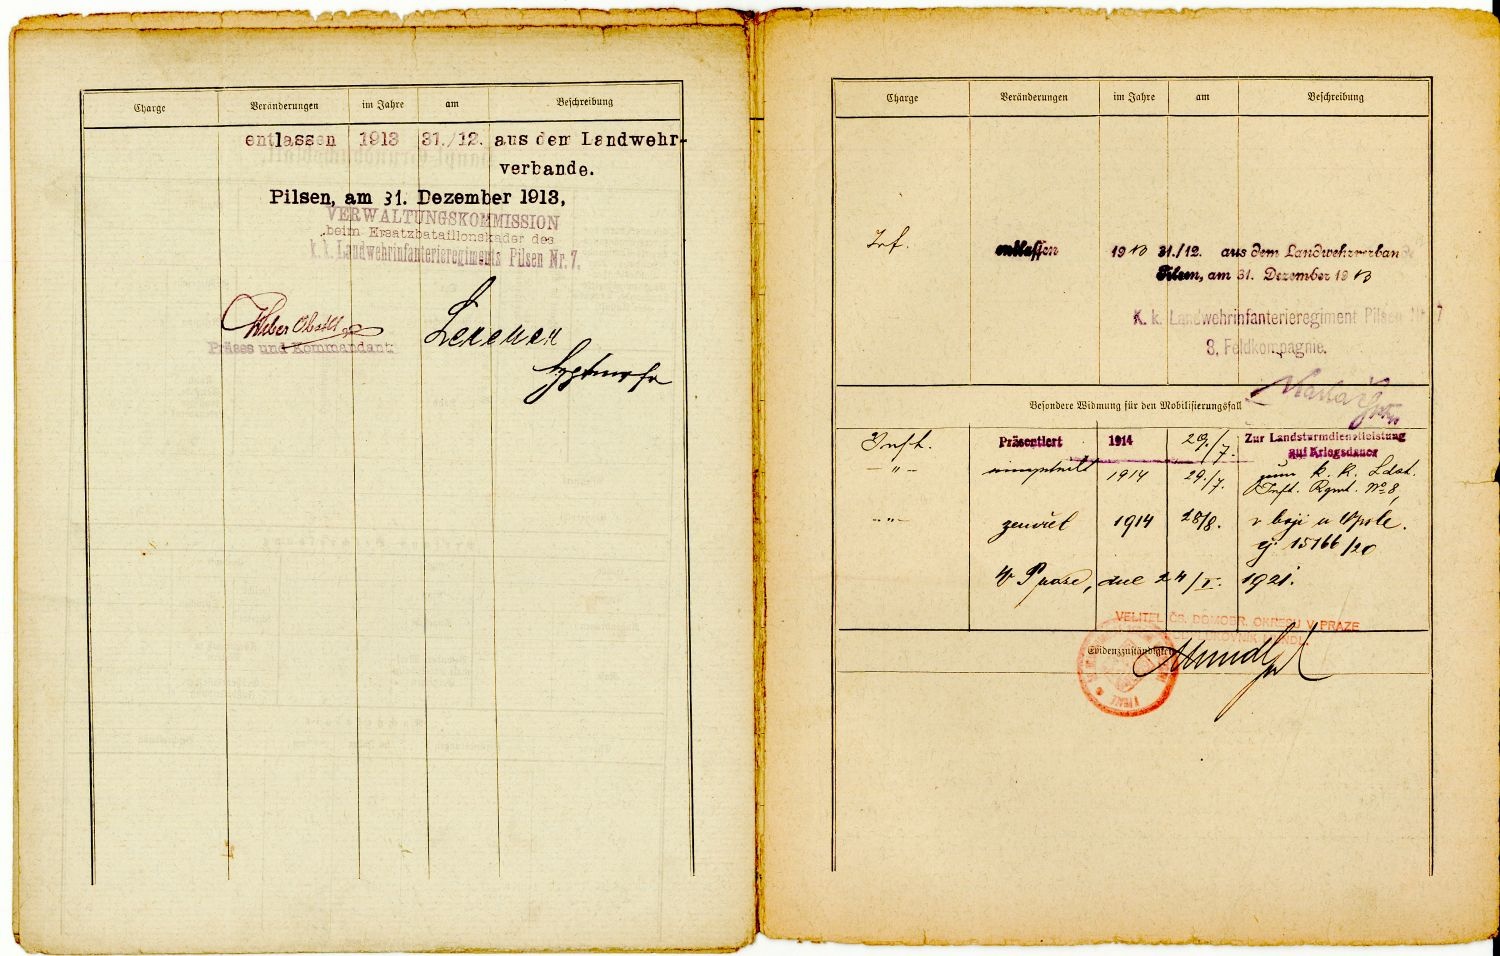 Charge Veränderungen im Jahre am Beschreibung
entlassen 1913 31./12. aus dem Landwehr-
verbande.
Pilsen, am 31. Dezember 1913,
VERWALTUNGSKOMMISSION
beim Ersatzbataillonskader des
k. k. Landwehrinfanterieregiments Pilsen Nr. 7.
Weber Obstlt
Präses und Kommandant
Charge Veränderungen im Jahre am Beschreibung
Inf. entlassen 1913 31./12. aus dem Landwehrverban
Pilsen, am 31. Dezember 1913
K. k. Landwehrinfanterieregiment Pilsen Nr 7
3. Feldkompagnie.
Besondere Widmung für den Mobilisierungsfall
Inft. Präsentiert 1914 29./7. Zur Landsturmdienstleistung
auf Kriegsdauer
-"- eingeteilt 1914 29./7. zum k. k. Ldst.
Inft. Rgmt. No 8,
-"- zemřel 1914 28/8. v boji u
čj 15166/20
V Praze, dne 24/I. 1921.
VELITEL ČS. DOMOBR. OKRESU V PRAZE
Evidenzzuständigkeit